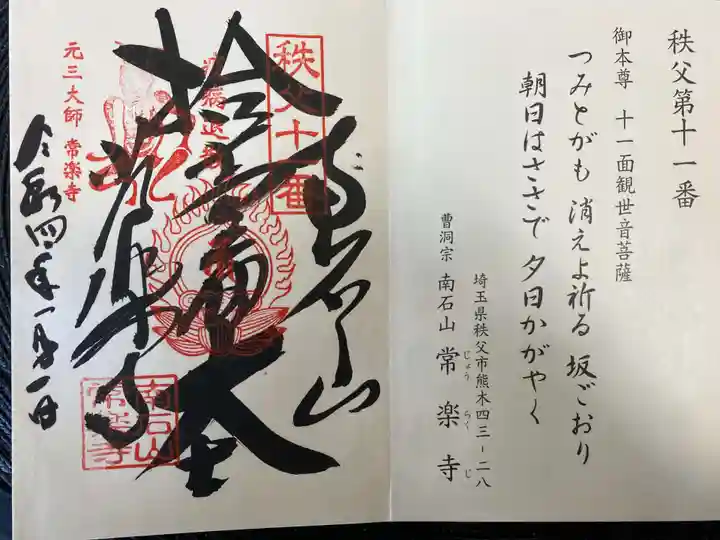 秩父第十一番
御本尊　十一面観世音菩薩
つみとがも　消えよ祈る　坂ごおり
朝日はささで　夕日かがやく
埼玉県秩父市熊木四三－二八
曹洞宗　南石山　常楽寺
じょう　らく　じ
秩父十一番
南石山
拾壹番
常楽寺
元三大師　常楽寺
令和四年一月一日
南石山
常楽寺